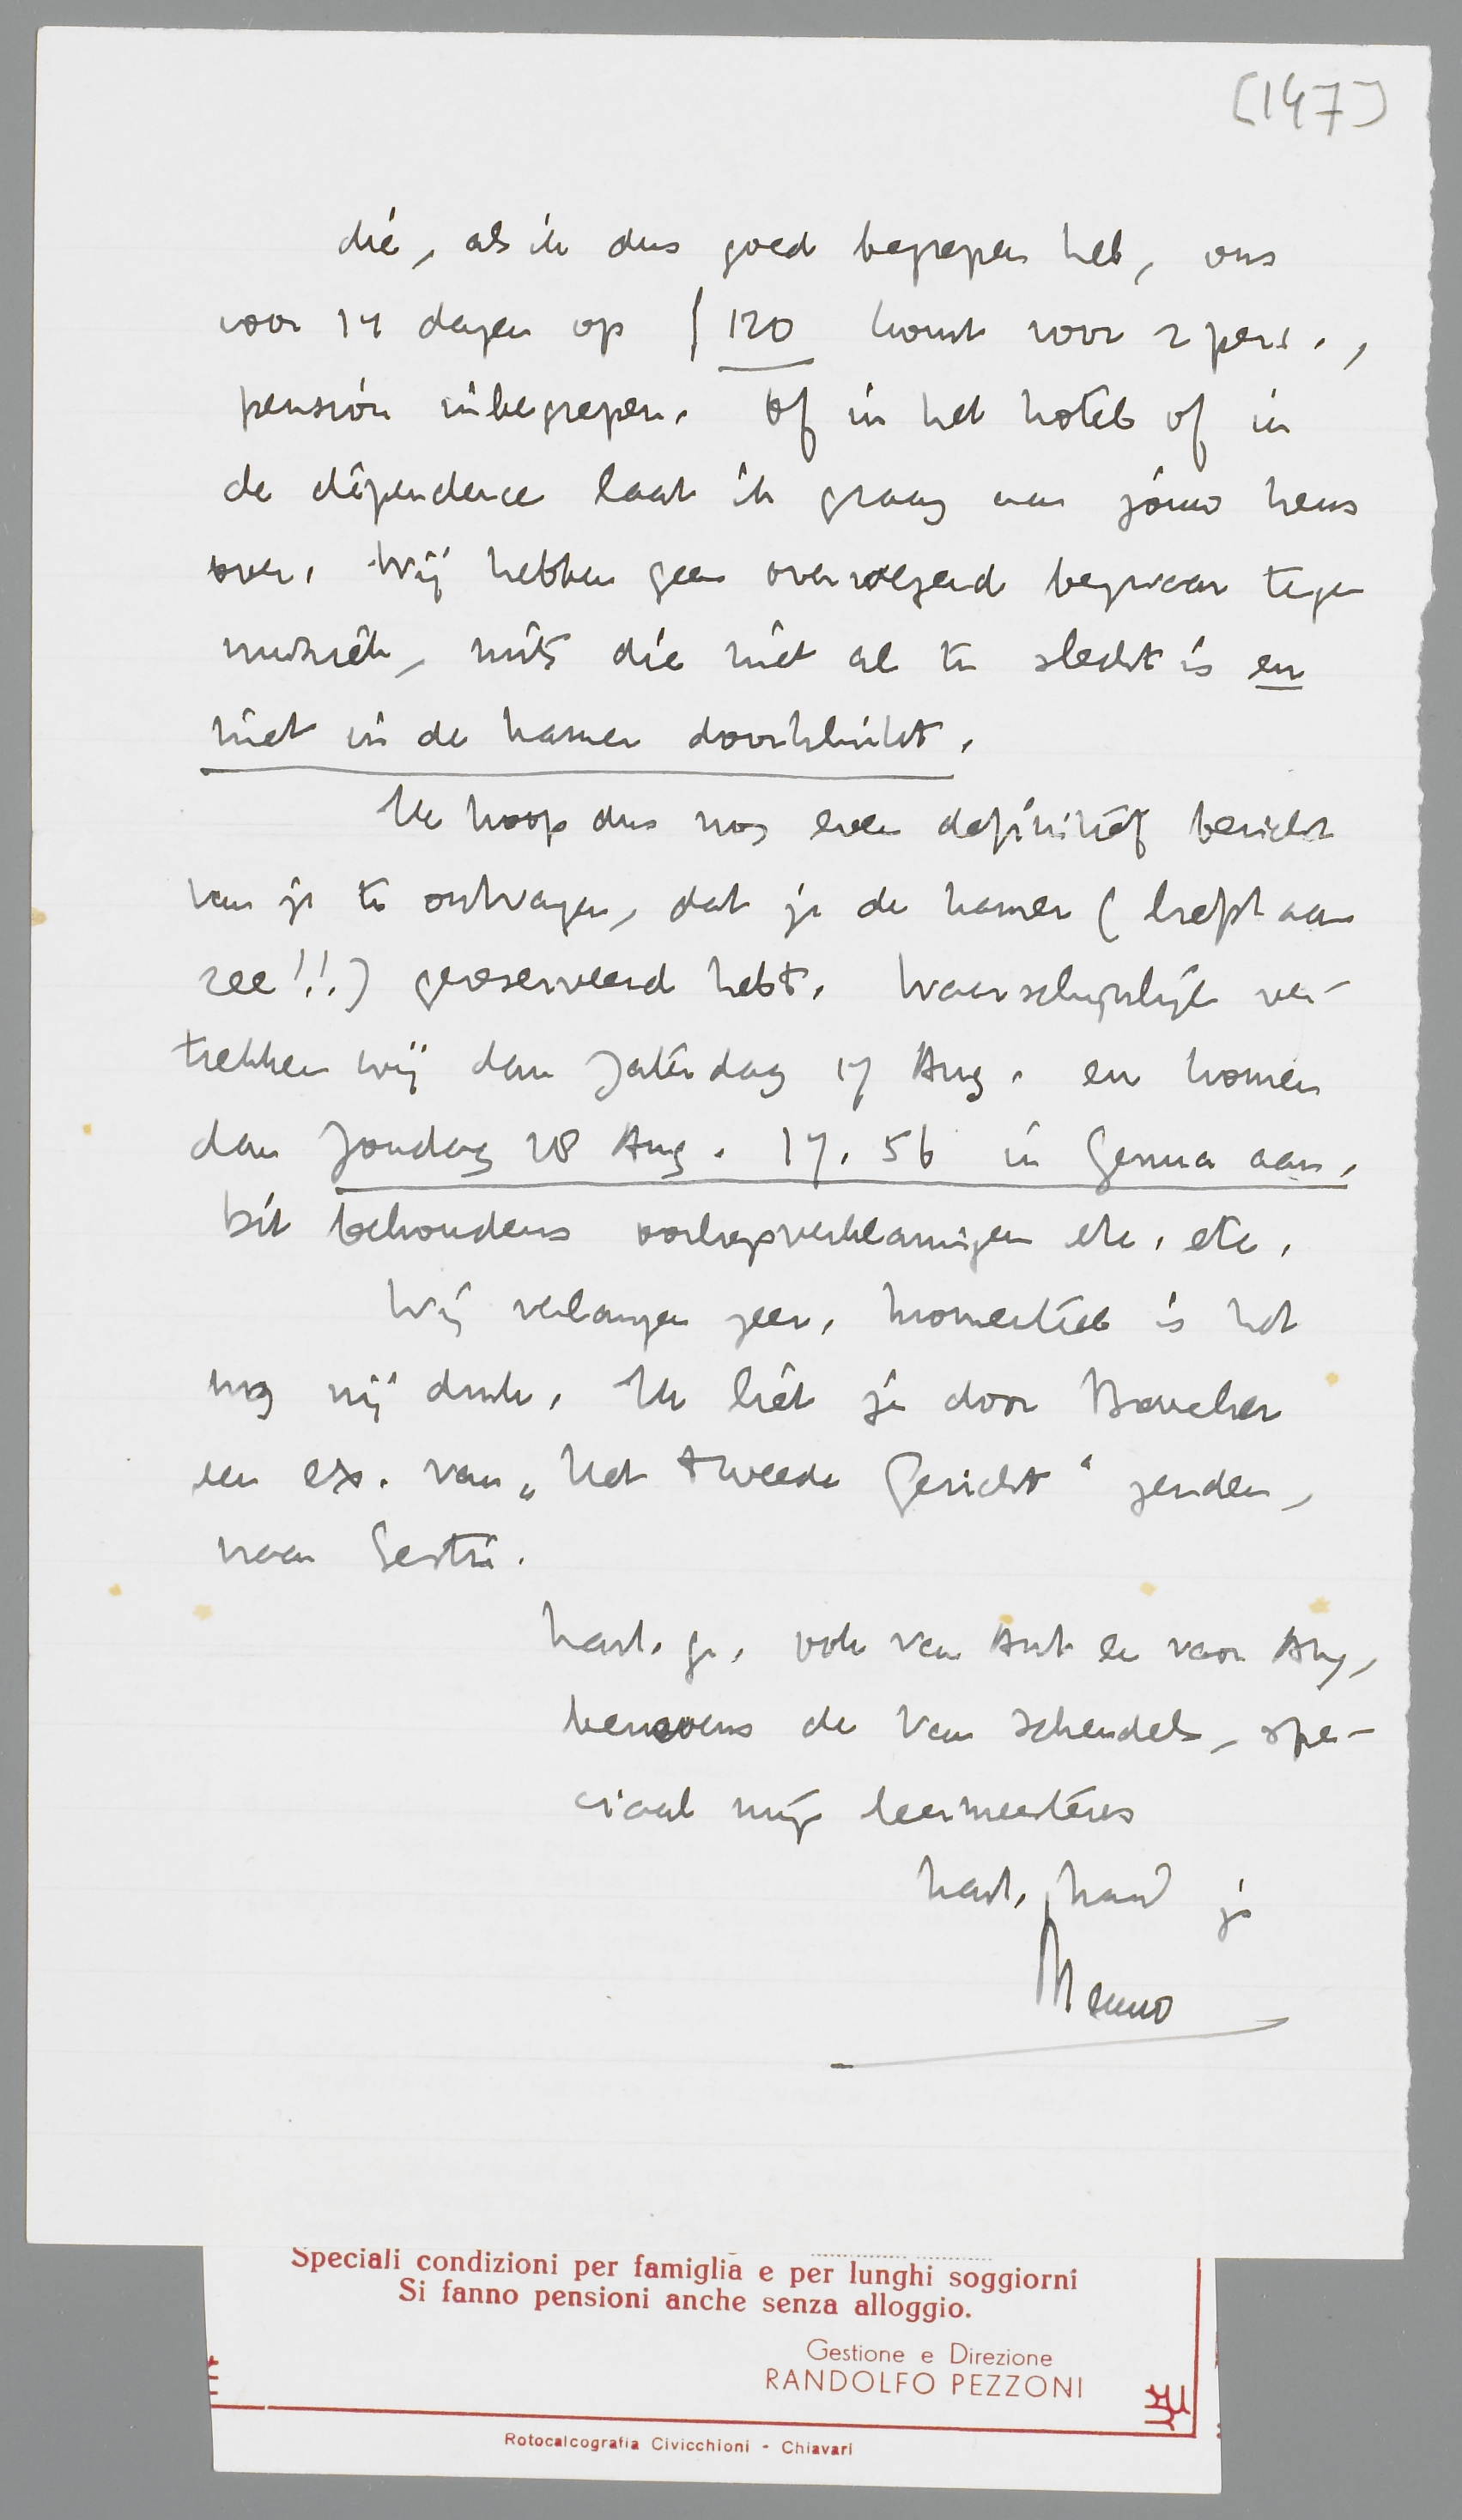 [147]
die, als ik dus goed begrepen heb, ons
voor 14 dagen op f 120 komt voor 2 pers.,
pension inbegrepen. Of in het hotel of in
de dépendance laat ik graag aan jouw keus
over. Wij hebben geen overwegend bezwaar tegen
muziek, mits die niet al te slecht is en
niet in de kamer doorklinkt.
Ik hoop dus nog even definitief bericht
van je te ontvangen, dat je de kamer (liefst aan
zee!!) gereserveerd hebt. Waarschijnlijk ver-
trekken wij dan Zaterdag 17 Aug. en komen
dan Zondag 18 Aug. 17.56 in Genua aan.
Dit behoudens oorlogsverklaringen etc. etc.
Wij verlangen zeer. Momenteel is het
nog vrij druk. Ik liet je door Boucher
een ex. van „Het Tweede Gericht" zenden,
naar Sestri.
hart. gr. ook van Ant en voor Any,
benevens de Van Schendels, spe-
ciaal mijn leermeesteres
hart. hand je
Menno
Speciali condizioni per famiglia e per lunghi soggiorni
Si fanno pensioni anche senza alloggio.
Gestione e Direzione
RANDOLFO PEZZONI
Rotocalcografia Civicchioni - Chiavari